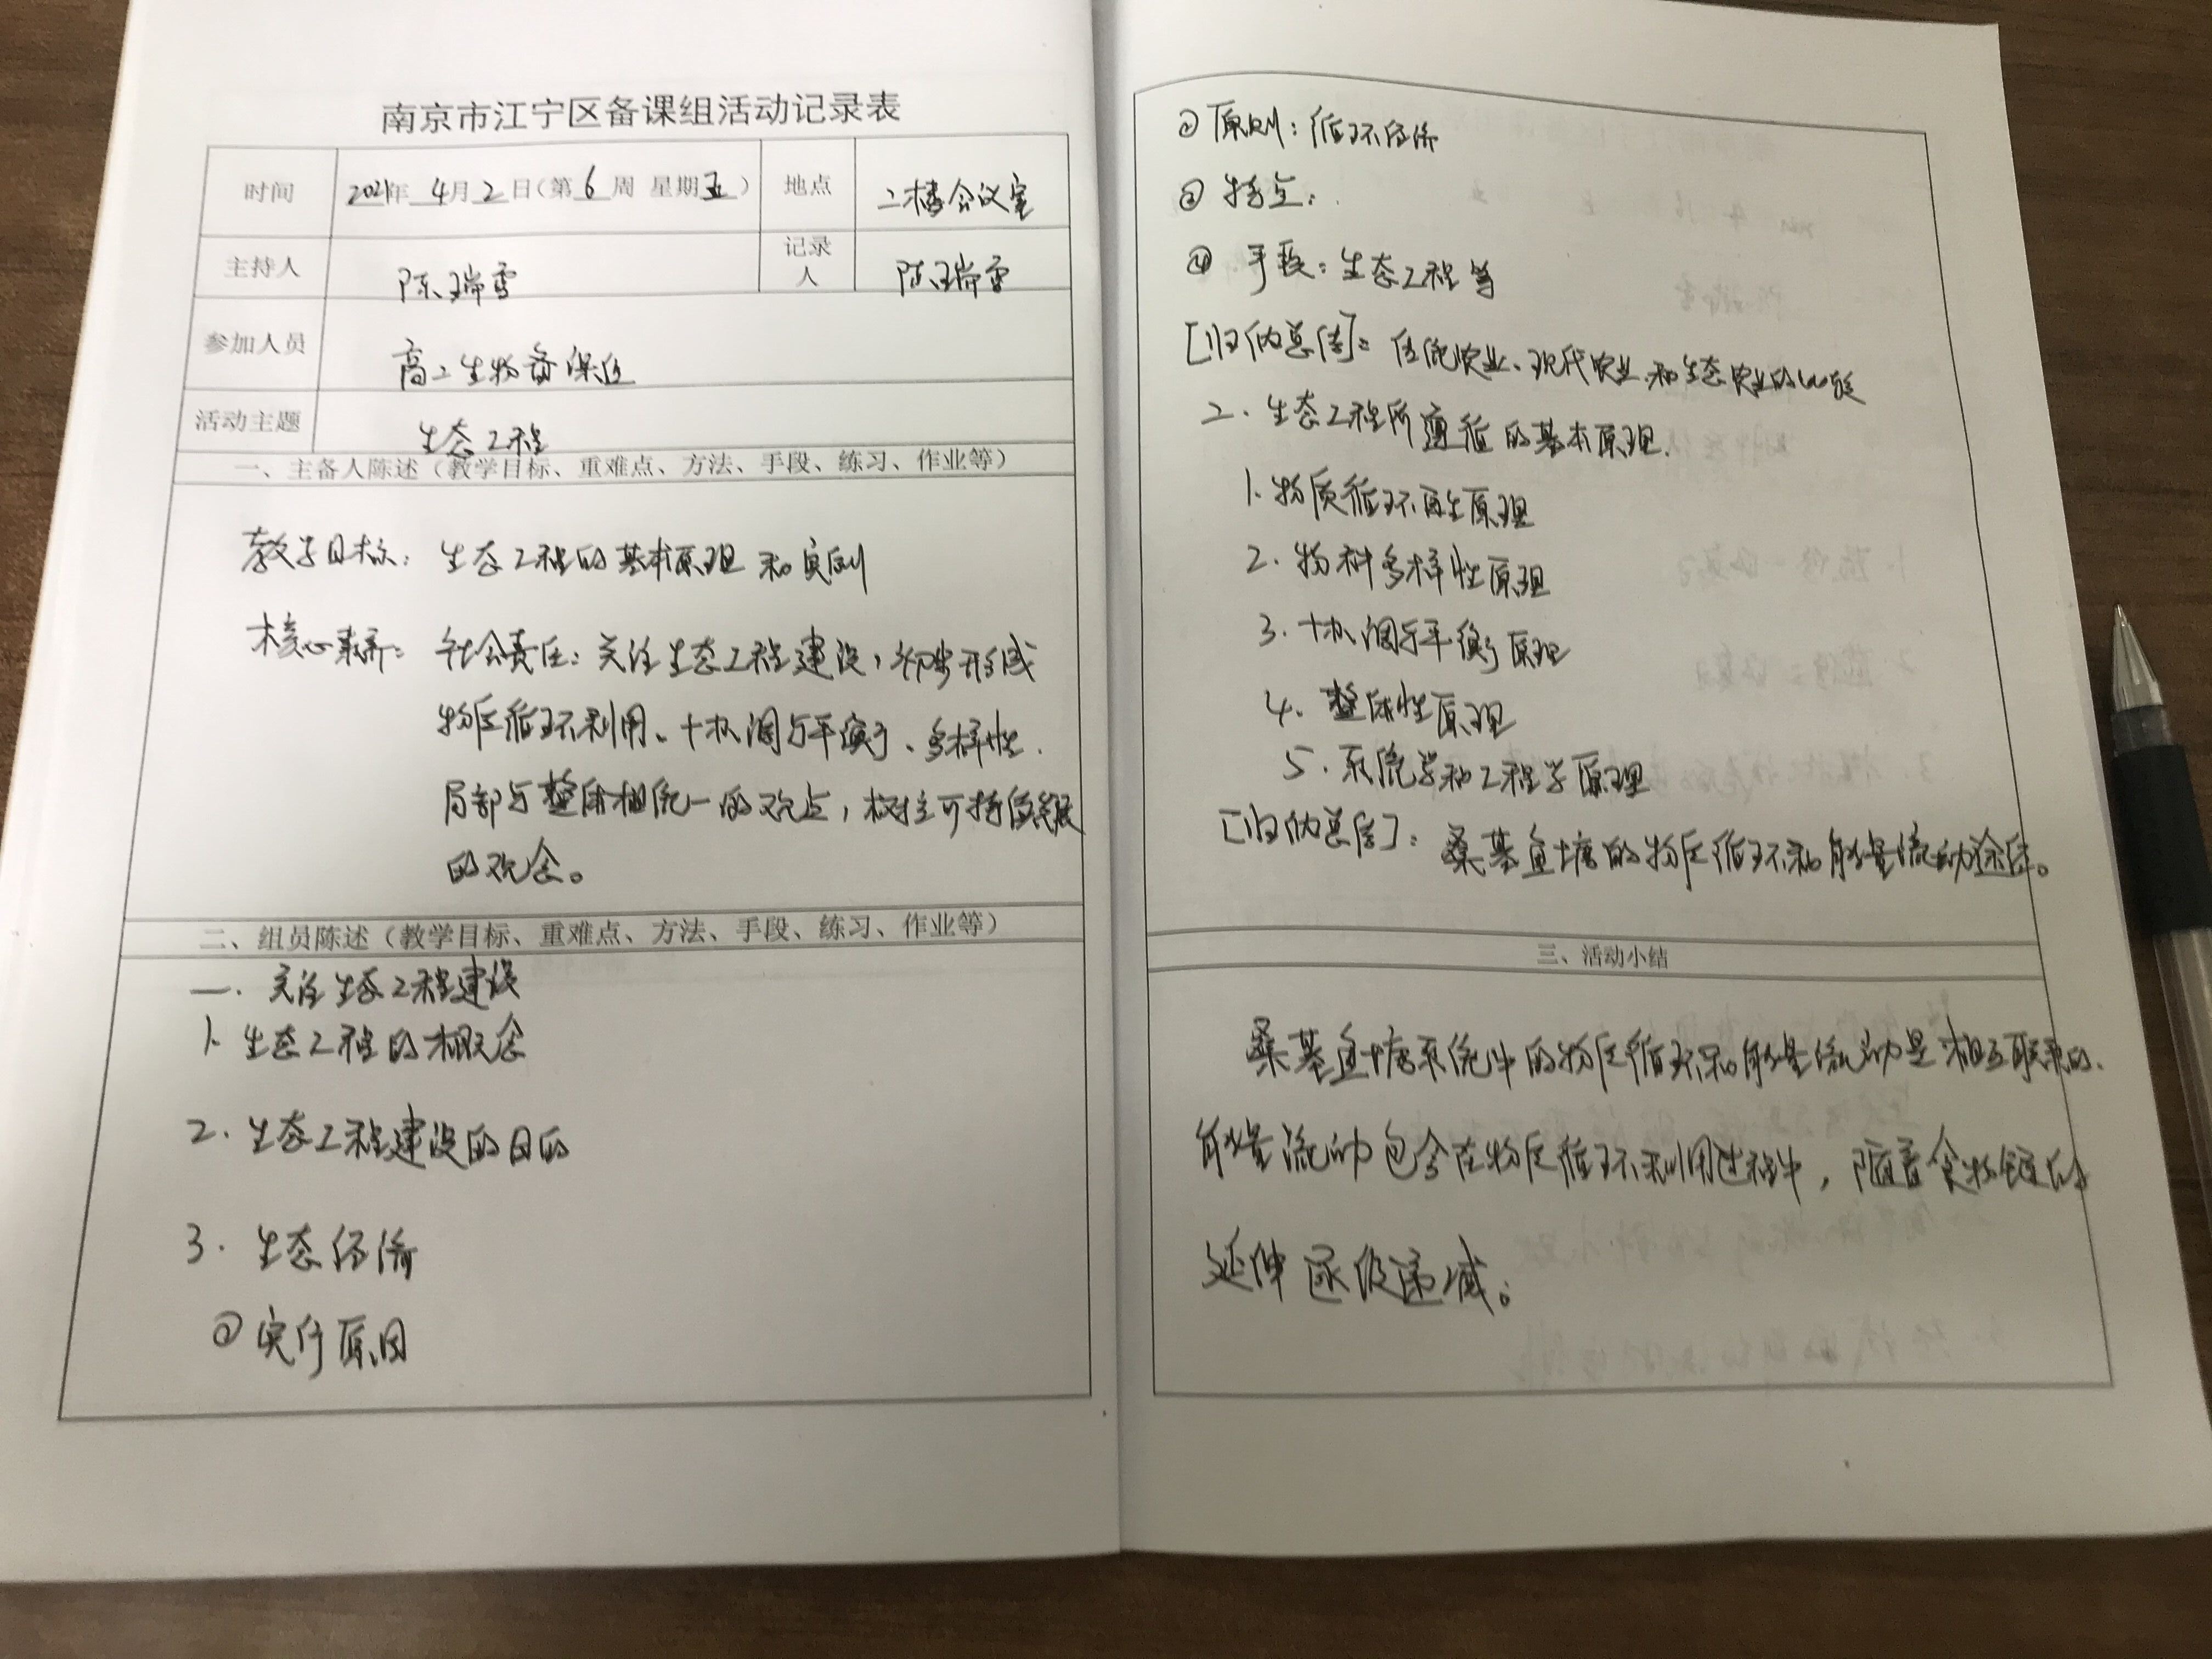 南京市江宁区备课组活动记录表
时间 2021年 4月2日(第6周 星期五) 地点 二楼会议室
主持人 陈瑞雪 记录人 陈瑞雪
参加人员 高二生物备课组
活动主题 生态工程
一、主备人陈述（教学目标、重难点、方法、手段、练习、作业等）
教学目标：生态工程的基本原理和实例
核心素养：社会责任：关注生态工程建设，初步形成
物质循环利用、协调与平衡、多样性、
局部与整体相统一的观点，树立可持续发展
的观念。
二、组员陈述（教学目标、重难点、方法、手段、练习、作业等）
一．关注生态工程建设
1. 生态工程的概念
2. 生态工程建设的目的
3. 生态经济
① 实行原因
② 原则：循环经济
③ 特点：
④ 手段：生态工程等
[归纳总结]：传统农业、现代农业和生态农业的比较
二．生态工程所遵循的基本原理.
1. 物质循环再生原理
2. 物种多样性原理
3. 协调与平衡原理
4. 整体性原理
5. 系统学和工程学原理
[归纳总结]：桑基鱼塘的物质循环和能量流动途径。
三、活动小结
桑基鱼塘系统中的物质循环和能量流动是相互联系的.
能量流动包含在物质循环利用过程中，随着食物链的
延伸逐级递减。